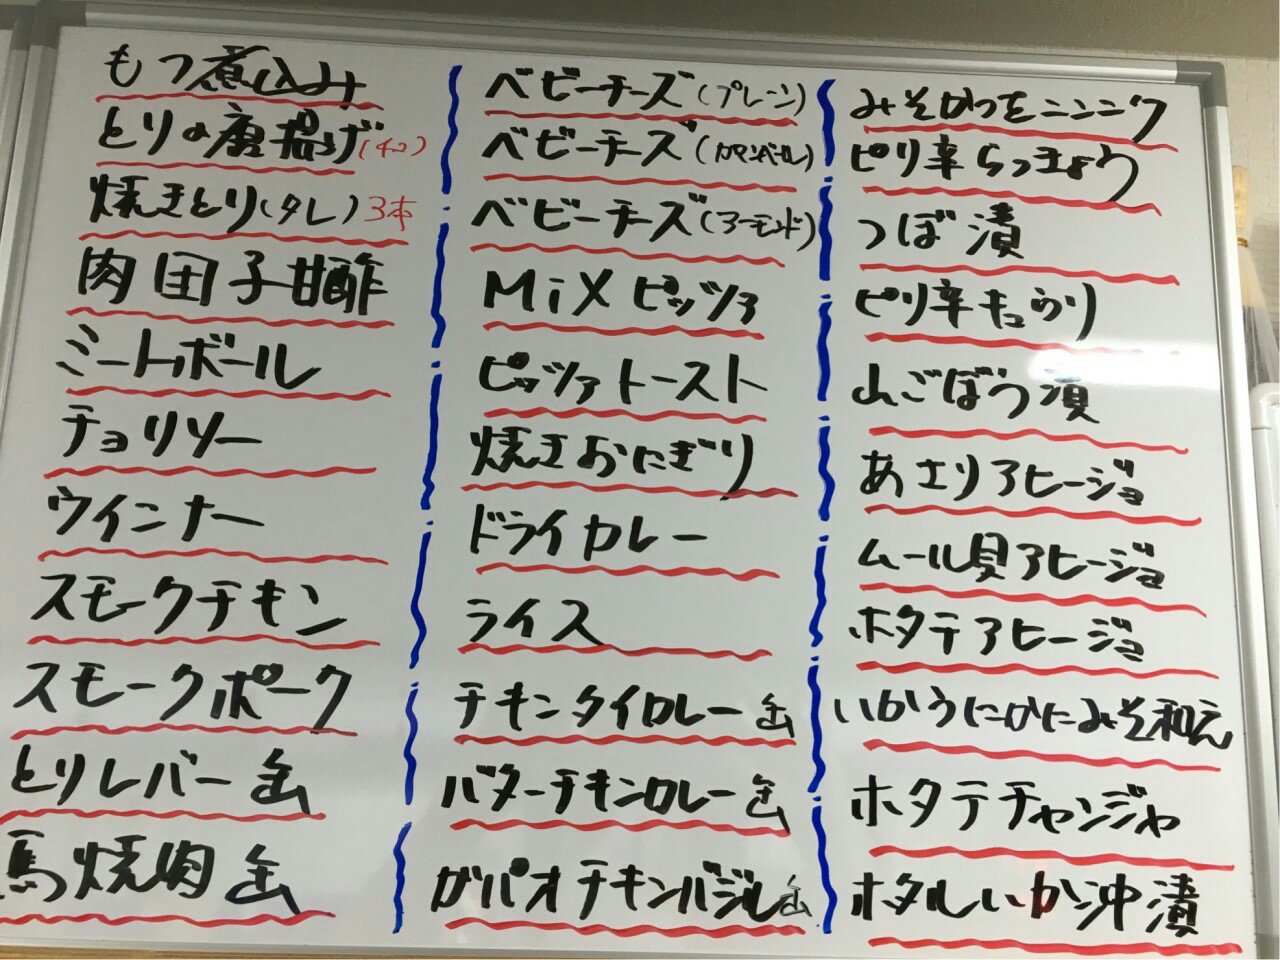 もつ煮込み
とりの唐揚げ(4コ)
焼きとり(タレ)3本
肉団子甘酢
ミートボール
チョリソー
ウインナー
スモークチキン
スモークポーク
とりレバー缶
馬焼肉缶
ベビーチーズ(プレーン)
ベビーチーズ(カマンベール)
ベビーチーズ(アーモンド)
MiXピッツァ
ピッツァトースト
焼きおにぎり
ドライカレー
ライス
チキンタイカレー缶
バターチキンカレー缶
ガパオチキンバジル缶
みそかつをニンニク
ピリ辛らっきょう
つぼ漬
ピリ辛キュウリ
山ごぼう漬
あさりアヒージョ
ムール貝アヒージョ
ホタテアヒージョ
いかうにかにみそ和え
ホタテチャンジャ
ホタルいか沖漬